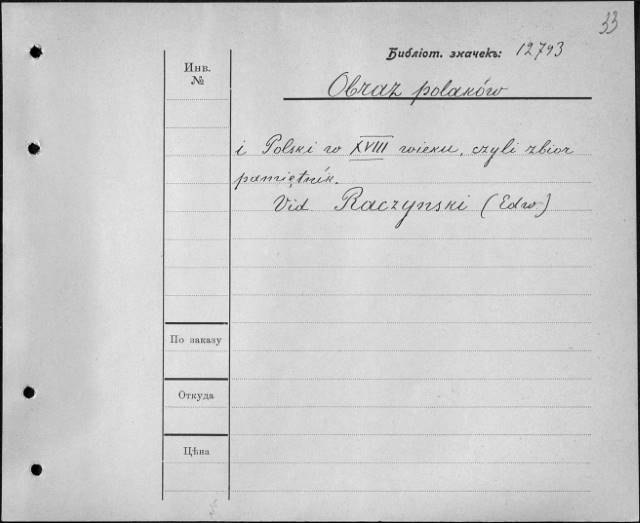 33
Библіот. значекъ: 12793
Инв.
№
Obraz polaków
i Polski w XVIII wieku, czyli zbior
pamiętnik.
Vid Raczynski (Edw)
По заказу
Откуда
Цѣна